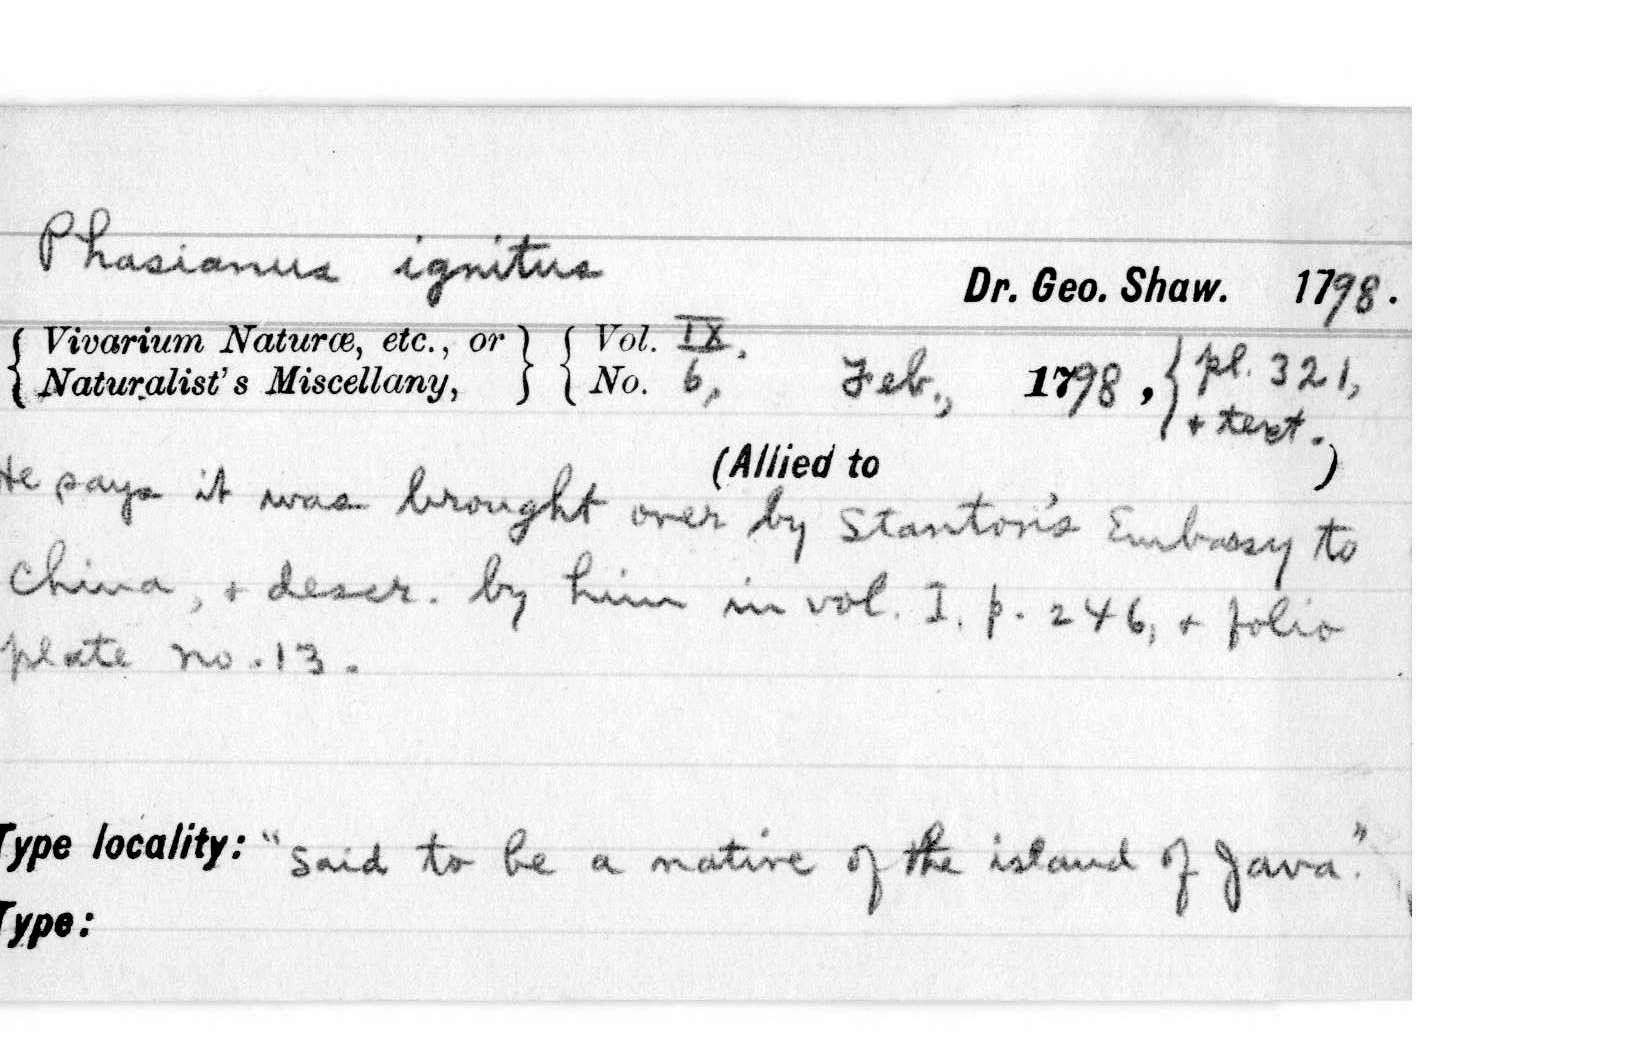 Phasianus ignitus
Dr. Geo. Shaw. 1798.
{ Vivarium Naturæ, etc., or } { Vol. IX.
{ Naturalist's Miscellany, } { No. 6, Feb., 1798, { pl. 321,
+ text.
(Allied to )
He says it was brought over by Stanton's Embassy to
China, + descr. by him in vol. I. p. 246, + folio
plate no. 13.
Type locality: "Said to be a native of the island of Java."
Type: